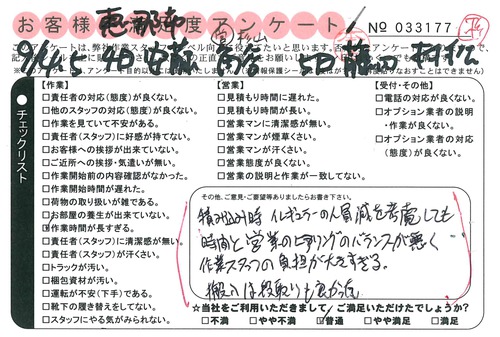 お客様満足度アンケート
NO 033177
恵那市
【作業】
□責任者の対応(態度)が良くない。
□他のスタッフの対応(態度)が良くない。
□作業を見ていて不安がある。
□責任者(スタッフ)に好感が持てない。
□お客様への挨拶が出来ていない。
□ご近所への挨拶・気遣いが無い。
□作業開始前の内容確認がなかった。
□作業開始時間が遅れた。
□荷物の取り扱いが雑である。
□お部屋の養生が出来ていない。
□作業時間が長すぎる。
□責任者(スタッフ)に清潔感が無い。
□責任者(スタッフ)が汗くさい。
□トラックが汚い。
□梱包資材が汚い。
□運転が不安(下手)である。
□靴下の履き替えをしてない。
□スタッフにやる気がみられない。
【営業】
□見積もり時間に遅れた。
□見積もり時間が長い。
□営業マンに清潔感が無い。
□営業マンが煙草くさい。
□営業マンが汗くさい。
□営業態度が良くない。
□営業の説明と作業が一致してない。
【受付・その他】
□電話の対応が良くない。
□オプション業者の説明
・作業が良くない。
□オプション業者の対応
(態度)が良くない。
チェックリスト
その他、ご意見・ご要望等ありましたらお書き下さい。
積み込み時 イレギュラーの人員減を考慮しても
時間と営業のヒアリングのバランスが悪く
作業スタッフの負担が大きすぎる。
搬入は段取りも良かった
☆当社をご利用いただきまして、ご満足いただけたでしょうか?
□不満 □やや不満 □普通 □やや満足 □満足